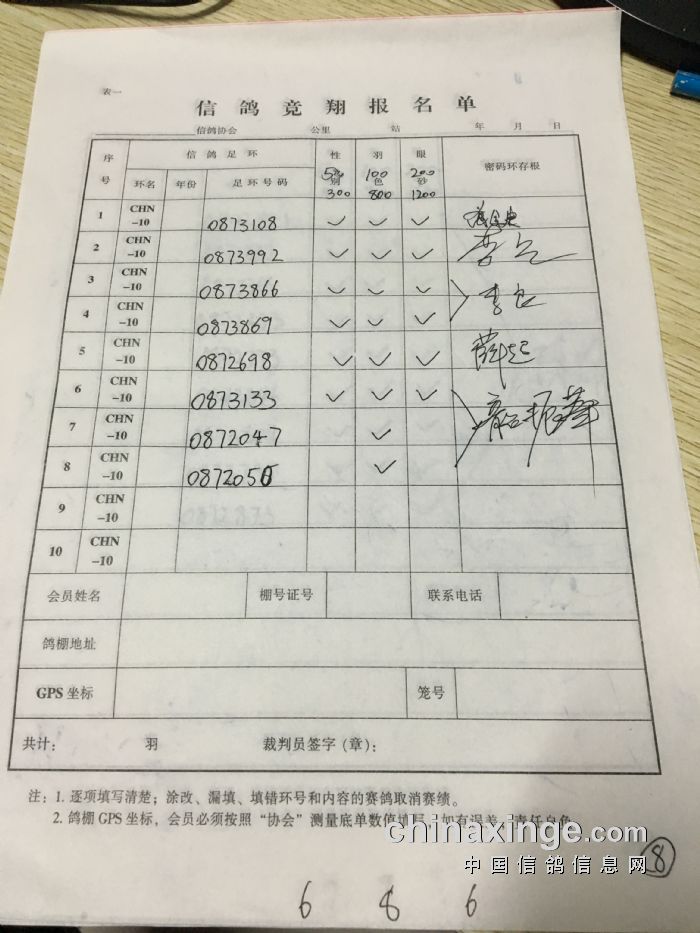 表一
信鸽竞翔报名单
信鸽协会 公里 站 年 月 日
序号 信鸽足环 性别 羽色 眼砂 密码环存根
环名 年份 足环号码 5% 300 100 800 200 1200
1 CHN-10 0873108 ✓ ✓ ✓
2 CHN-10 0873992 ✓ ✓ ✓
3 CHN-10 0873866 ✓ ✓ ✓
4 CHN-10 0873869 ✓ ✓ ✓
5 CHN-10 0872698 ✓ ✓ ✓
6 CHN-10 0873133 ✓ ✓ ✓
7 CHN-10 0872047 ✓
8 CHN-10 087205 ✓
9 CHN-10
10 CHN-10
会员姓名 棚号证号 联系电话
鸽棚地址
GPS 坐标 笼号
共计： 羽 裁判员签字（章）：
注：1. 逐项填写清楚；涂改、漏填、填错环号和内容的赛鸽取消赛绩。
2. 鸽棚 GPS 坐标，会员必须按照“协会”测量底单数值填写，如有误差，责任自负
chinaxinge.com
中国信鸽信息网
8
6 8 6